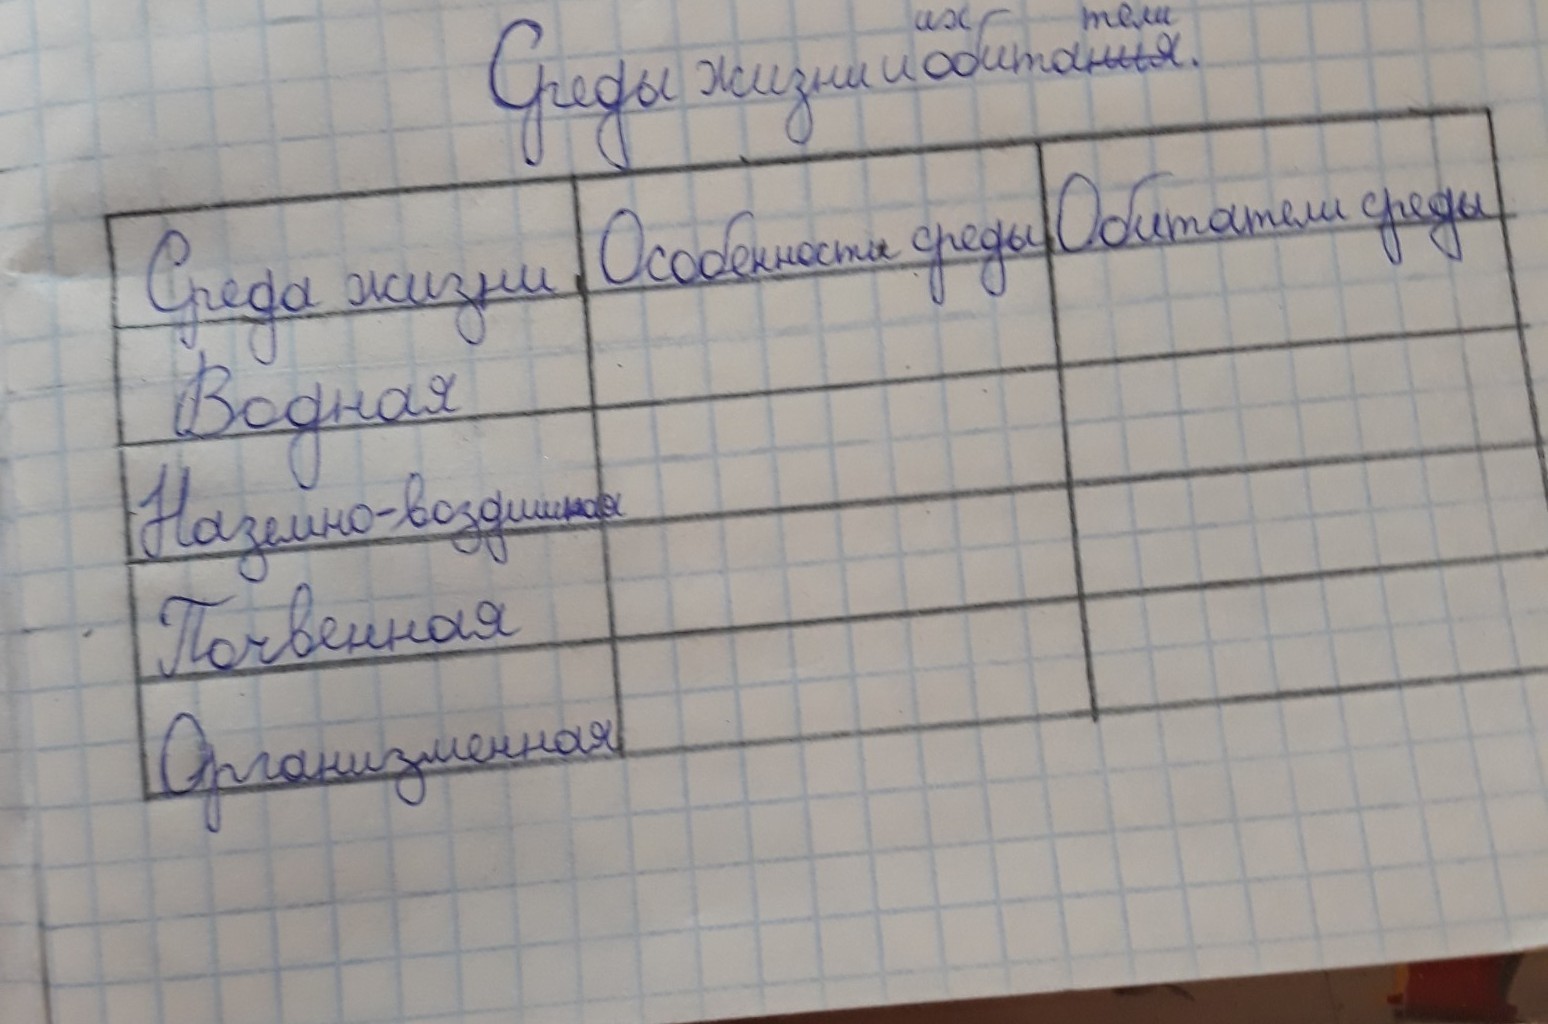 их тели
Среды жизни и обитания.
Среда жизни Особенности среды Обитатели среды
Водная
Наземно-воздушная
Почвенная
Организменная